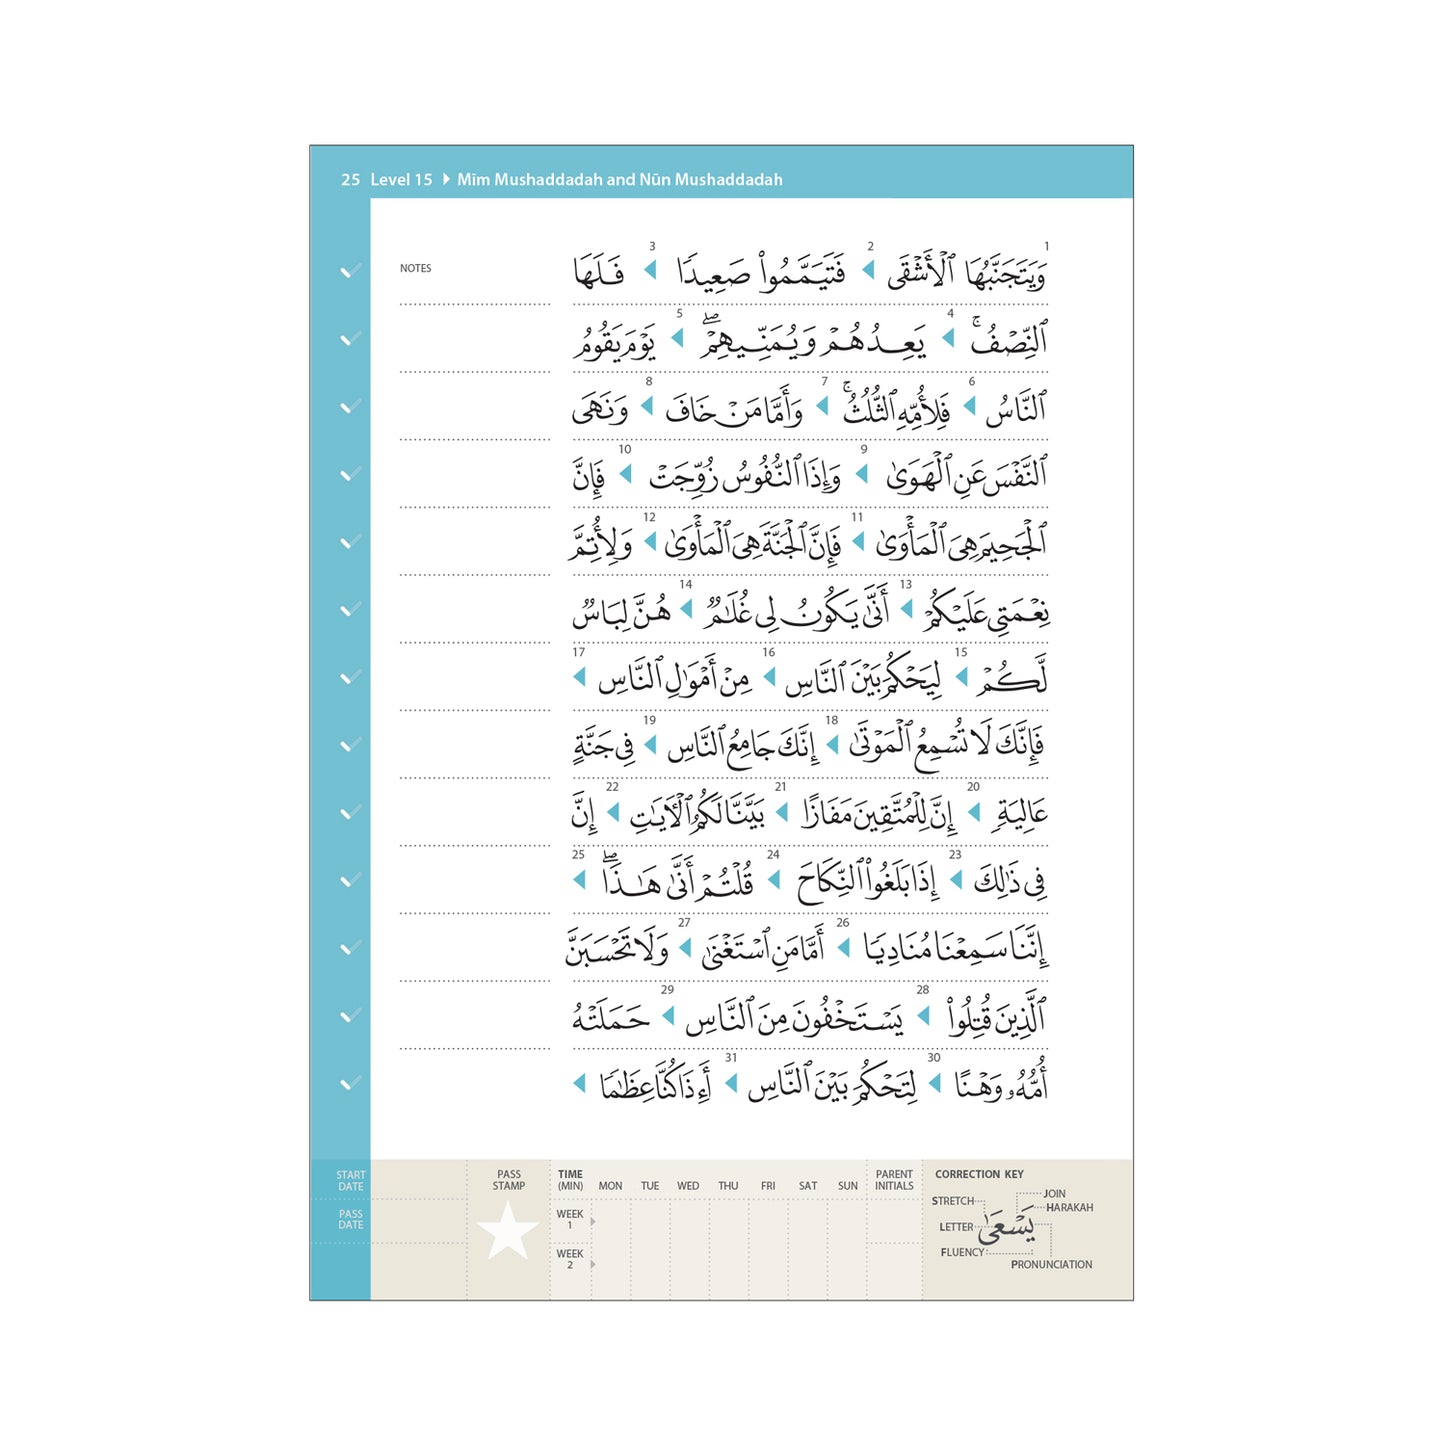 25 Level 15 ▸ Mīm Mushaddadah and Nūn Mushaddadah
1 2 3
NOTES
وَيَتَجَنَّبُهَا ٱلْأَشْقَى ◀ فَتَيَمَّمُوا۟ صَعِيدًا ◀ فَلَهَا
4 5
ٱلنِّصْفُ ۚ ◀ يَعِدُهُمْ وَيُمَنِّيهِمْ ۖ ◀ يَوْمَ يَقُومُ
6 7 8
ٱلنَّاسُ ◀ فَلِأُمِّهِ ٱلثُّلُثُ ۚ ◀ وَأَمَّا مَنْ خَافَ ◀ وَنَهَى
9 10
ٱلنَّفْسَ عَنِ ٱلْهَوَىٰ ◀ وَإِذَا ٱلنُّفُوسُ زُوِّجَتْ ◀ فَإِنَّ
11 12
ٱلْجَحِيمَ هِىَ ٱلْمَأْوَىٰ ◀ فَإِنَّ ٱلْجَنَّةَ هِىَ ٱلْمَأْوَىٰ ◀ وَلِأُتِمَّ
13 14
نِعْمَتِى عَلَيْكُمْ ◀ أَنَّىٰ يَكُونُ لِى غُلَـٰمٌ ◀ هُنَّ لِبَاسٌ
15 16 17
لَّكُمْ ◀ لِيَحْكُمَ بَيْنَ ٱلنَّاسِ ◀ مِنْ أَمْوَٰلِ ٱلنَّاسِ ◀
18 19
فَإِنَّكَ لَا تُسْمِعُ ٱلْمَوْتَىٰ ◀ إِنَّكَ جَامِعُ ٱلنَّاسِ ◀ فِى جَنَّةٍ
20 21 22
عَالِيَةٍ ◀ إِنَّ لِلْمُتَّقِينَ مَفَازًا ◀ بَيَّنَّا لَكُمُ ٱلْـَٔايَـٰتِ ◀ إِنَّ
23 24 25
فِى ذَٰلِكَ ◀ إِذَا بَلَغُوا۟ ٱلنِّكَاحَ ◀ قُلْتُمْ أَنَّىٰ هَـٰذَا ۖ ◀
26 27
إِنَّنَا سَمِعْنَا مُنَادِيًا ◀ أَمَّا مَنِ ٱسْتَغْنَىٰ ◀ وَلَا تَحْسَبَنَّ
28 29
ٱلَّذِينَ قُتِلُوا۟ ◀ يَسْتَخْفُونَ مِنَ ٱلنَّاسِ ◀ حَمَلَتْهُ
30 31
أُمُّهُۥ وَهْنًا ◀ لِتَحْكُمَ بَيْنَ ٱلنَّاسِ ◀ أَءِذَا كُنَّا عِظَـٰمًا ◀
START DATE
PASS DATE
PASS STAMP
TIME (MIN) MON TUE WED THU FRI SAT SUN
WEEK 1
WEEK 2
PARENT INITIALS
CORRECTION KEY
STRETCH
JOIN
HARAKAH
LETTER
يَسْعَىٰ
FLUENCY
PRONUNCIATION